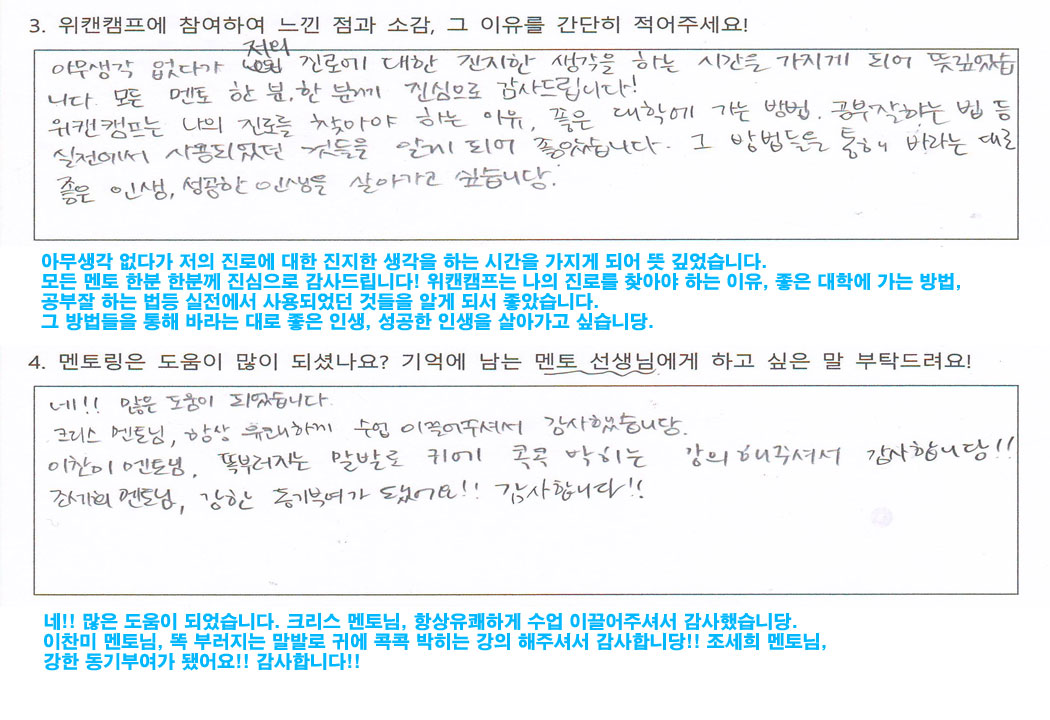 3. 위캔캠프에 참여하여 느낀 점과 소감, 그 이유를 간단히 적어주세요!
저의
아무생각 없다가 진로에 대한 진지한 생각을 하는 시간을 가지게 되어 뜻깊었습
니다. 모든 멘토 한 분, 한 분께 진심으로 감사드립니다!
위캔캠프는 나의 진로를 찾아야 하는 이유, 좋은 대학에 가는 방법, 공부잘하는 법 등
실전에서 사용되었던 것들을 알게 되어 좋았습니다. 그 방법들을 통해 바라는 대로
좋은 인생, 성공한 인생을 살아가고 싶습니당.
아무생각 없다가 저의 진로에 대한 진지한 생각을 하는 시간을 가지게 되어 뜻 깊었습니다.
모든 멘토 한분 한분께 진심으로 감사드립니다! 위캔캠프는 나의 진로를 찾아야 하는 이유, 좋은 대학에 가는 방법,
공부잘 하는 법등 실전에서 사용되었던 것들을 알게 되서 좋았습니다.
그 방법들을 통해 바라는 대로 좋은 인생, 성공한 인생을 살아가고 싶습니당.
4. 멘토링은 도움이 많이 되셨나요? 기억에 남는 멘토 선생님에게 하고 싶은 말 부탁드려요!
네!! 많은 도움이 되었습니다.
크리스 멘토님, 항상 유쾌하게 수업 이끌어주셔서 감사했습니당.
이찬미 멘토님, 똑부러지는 말발로 귀에 콕콕 박히는 강의해주셔서 감사합니당!!
조세희 멘토님, 강한 동기부여가 됐어요!! 감사합니다!!
네!! 많은 도움이 되었습니다. 크리스 멘토님, 항상유쾌하게 수업 이끌어주셔서 감사했습니당.
이찬미 멘토님, 똑 부러지는 말발로 귀에 콕콕 박히는 강의 해주셔서 감사합니당!! 조세희 멘토님,
강한 동기부여가 됐어요!! 감사합니다!!